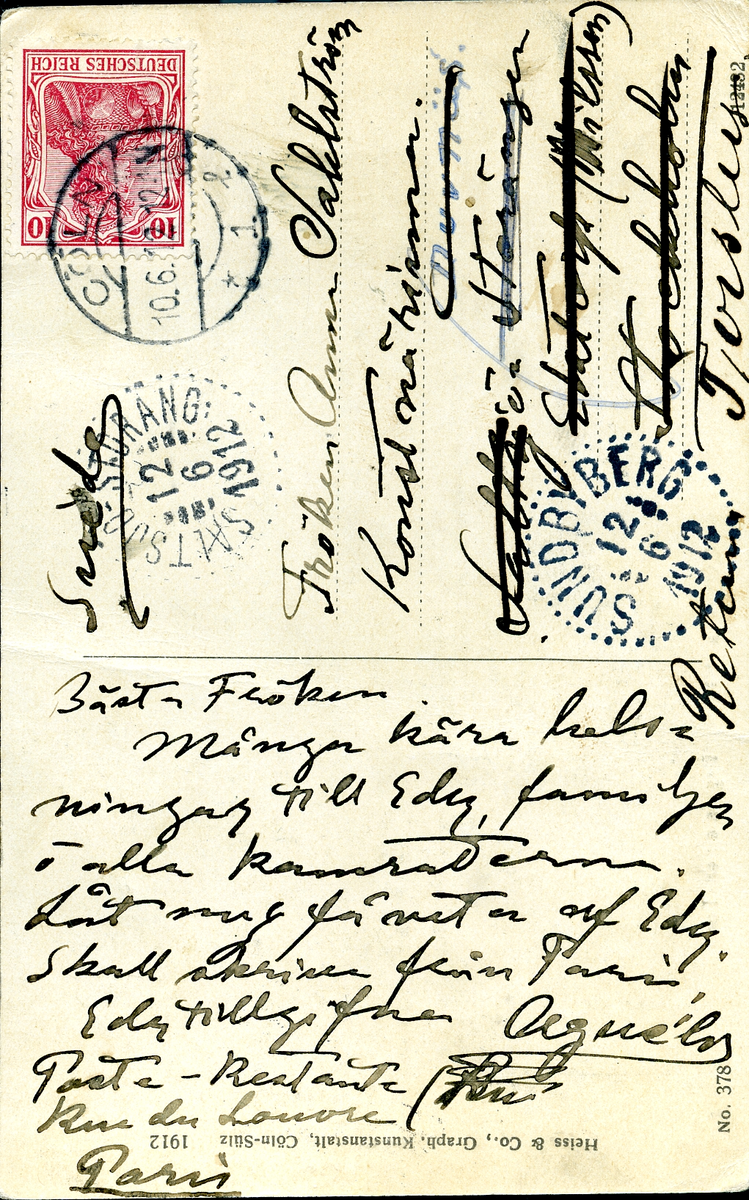 DEUTSCHES REICH
10
CÖLN
10.6.12
* 1 *
SALTSJÖ-STORÄNG.
12
6
1912
SUNDBYBERG
12
6
1912
Suède
Fröken Anna Sahlström
Konstnärinna.
Saltsjö Storängen
Stockholm
Torsby
Retur
12432
Bästa Fröken
Många kära hels-
ningar till Eder, familjen
o alla kamraterna.
Låt mig få veta af Eder.
Skall skriva från Paris,
Eder tillgifne Aguéli
Poste-Restante
Rue du Louvre
Paris
No. 378
Heiss & Co., Graph. Kunstanstalt, Cöln-Sülz 1912